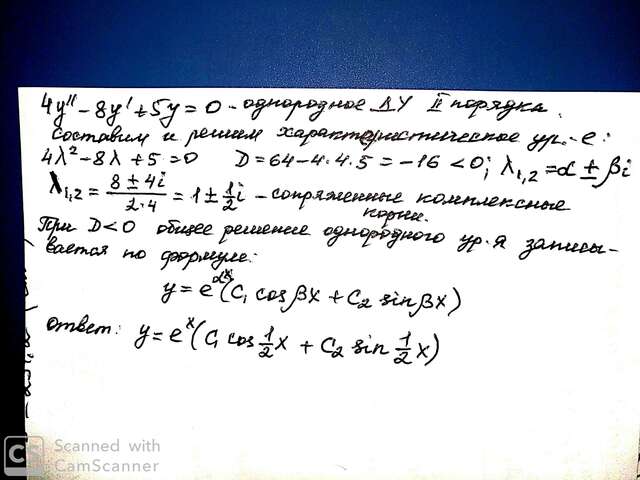 4y'' - 8y' + 5y = 0 - однородное ДУ II порядка.
Составим и решим характеристическое ур.-е:
4λ² - 8λ + 5 = 0   D = 64 - 4·4·5 = -16 < 0; λ₁,₂ = α ± βi
λ₁,₂ = (8 ± 4i)/(2·4) = 1 ± 1/2 i - сопряженные комплексные
корни.
При D < 0 общее решение однородного ур-я записы-
вается по формуле:
y = e^{αx} (C₁ cos βx + C₂ sin βx)
Ответ: y = e^x (C₁ cos 1/2 x + C₂ sin 1/2 x)
CS Scanned with
CamScanner